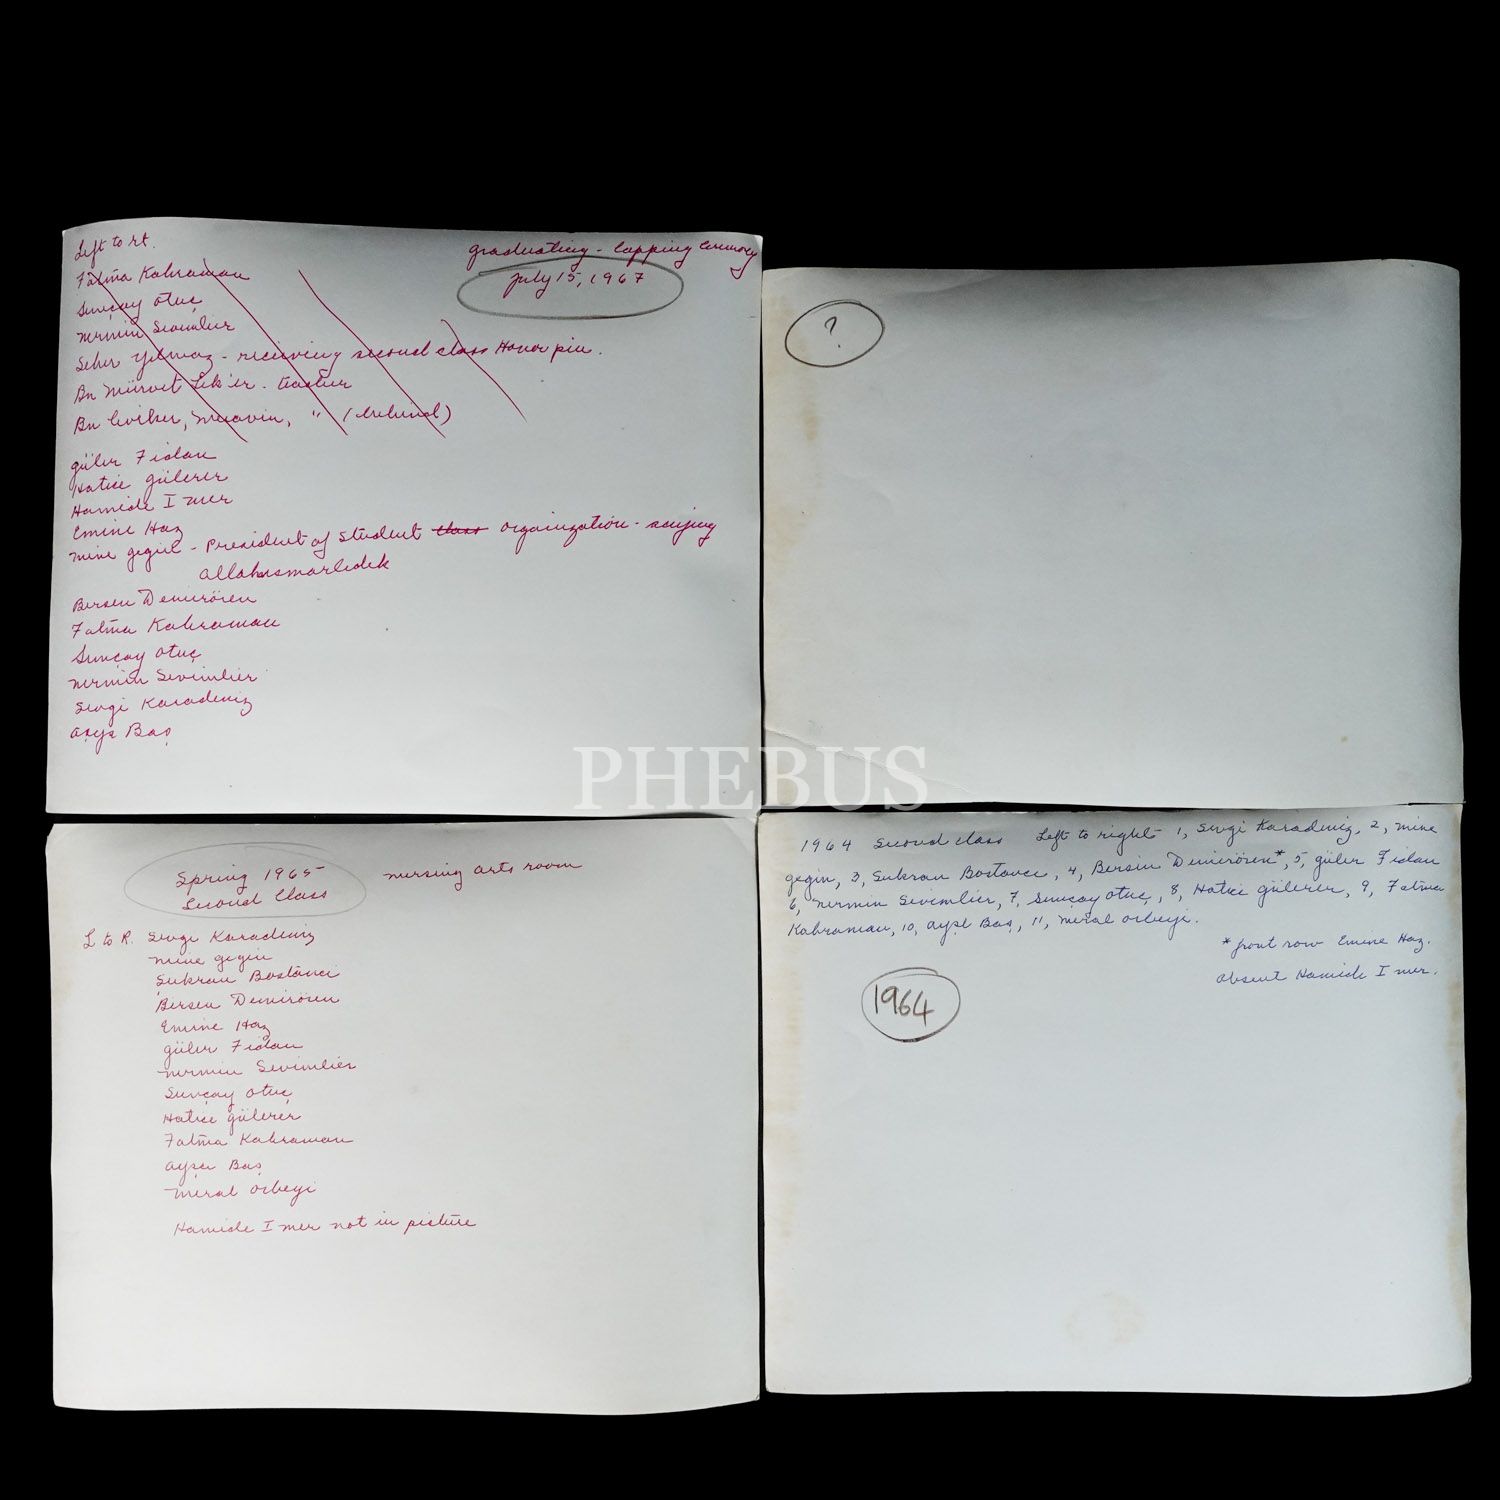 Left to rt.
graduating - Capping Ceremony
July 15, 1967
Fatma Kahraman
Sunçay Otuç
Nermin Sevimlier
Seher Yılmaz - receiving second class Honor pin.
Bn Mürvet - teacher
Bn
Güler Fidan
Hatice Gülerer
Hamide Imer
Emine Haz
Mine Gegin - President of Student class organization - saying
allahısmarledik
Bersen Demirören
Fatma Kahraman
Sunçay Otuç
Nermin Sevimlier
Sevgi Karadeniz
Ayşe Baş
?
PHEBUS
Spring 1965
Second Class
nursing arts room
L to R. Sevgi Karadeniz
Mine Gegin
Sukran Bostanci
Bersen Demirören
Emine Haz
Güler Fidan
Nermin Sevimlier
Sunçay Otuç
Hatice Gülerer
Fatma Kahraman
Ayşe Baş
Meral Orbeyi
Hamide Imer not in picture
1964 Second class Left to right 1, Sevgi Karadeniz, 2, Mine
Gegin, 3, Sukran Bostanci, 4, Bersin Demirören*, 5, Güler Fidan
6, Nermin Sevimlier, 7, Sunçay Otuç, 8, Hatice Gülerer, 9, Fatma
Kahraman, 10, Ayşe Baş, 11, Meral Orbeyi.
* front row Emine Haz.
absent Hamide Imer.
1964